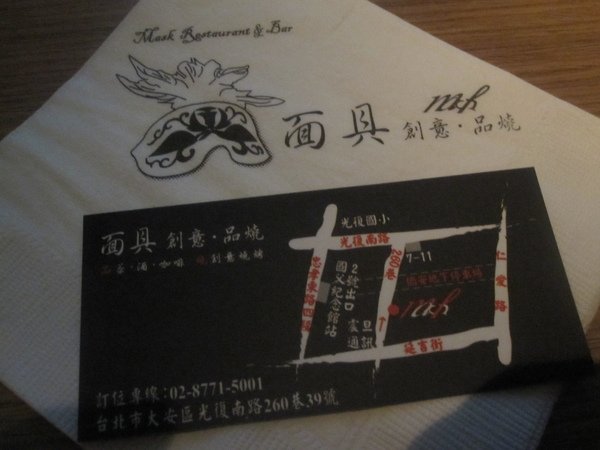 Mask Restaurant & Bar
面具 創意·品燒
mask
面具 創意·品燒
品 茶·酒·咖啡 燒 創意燒烤
光復國小
光復南路
忠孝東路四段
國父紀念館站
2號出口
震旦通訊
260巷
7-11
仁愛路
延吉街
訂位專線:02-8771-5001
台北市大安區光復南路260巷39號